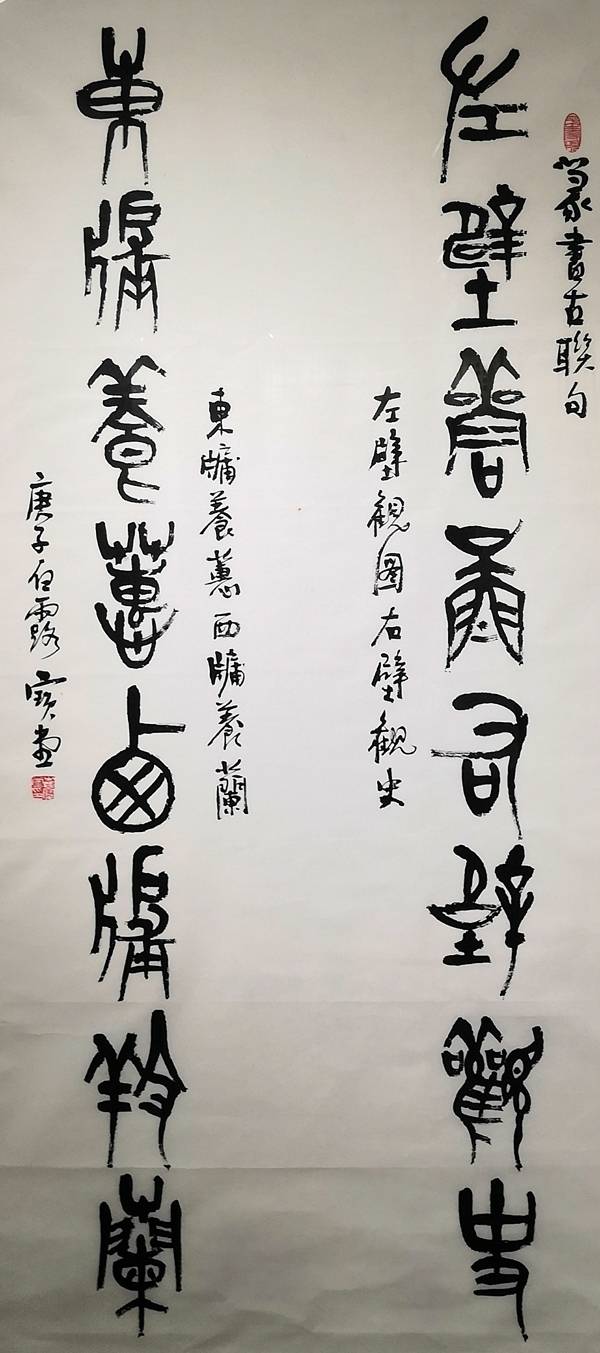 篆書古聯句
左壁觀圖右壁觀史
左壁觀圖右壁觀史
東牖養蕙西牖養蘭
東牖養蕙西牖養蘭
庚子白露寶